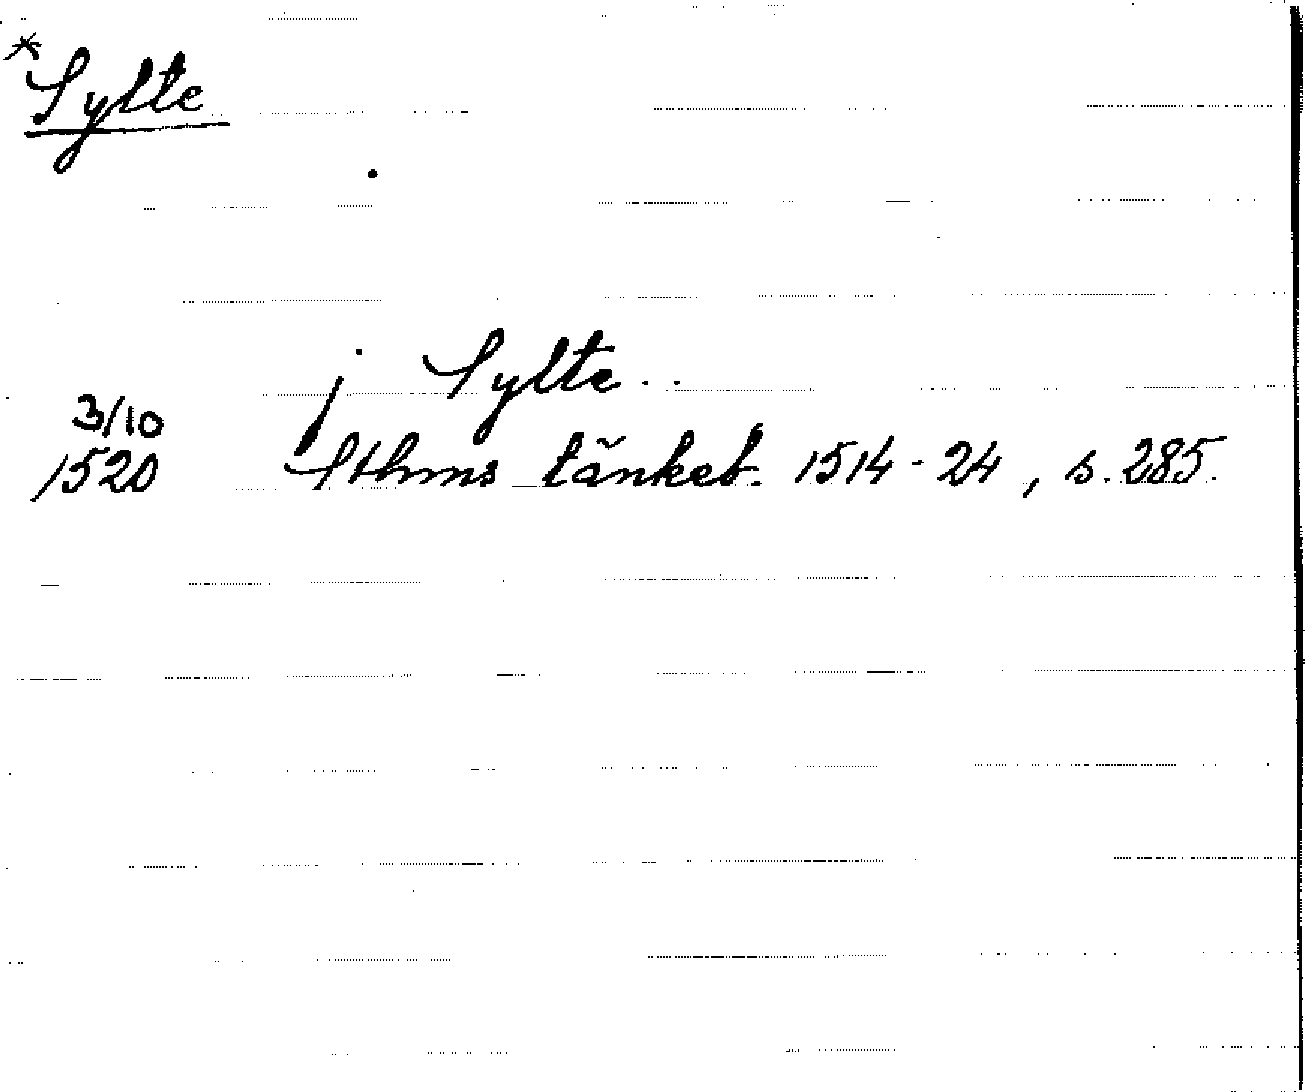 *Sylte
j Sylte
3/10
1520 Sthms tänkeb. 1514-24, s. 285.